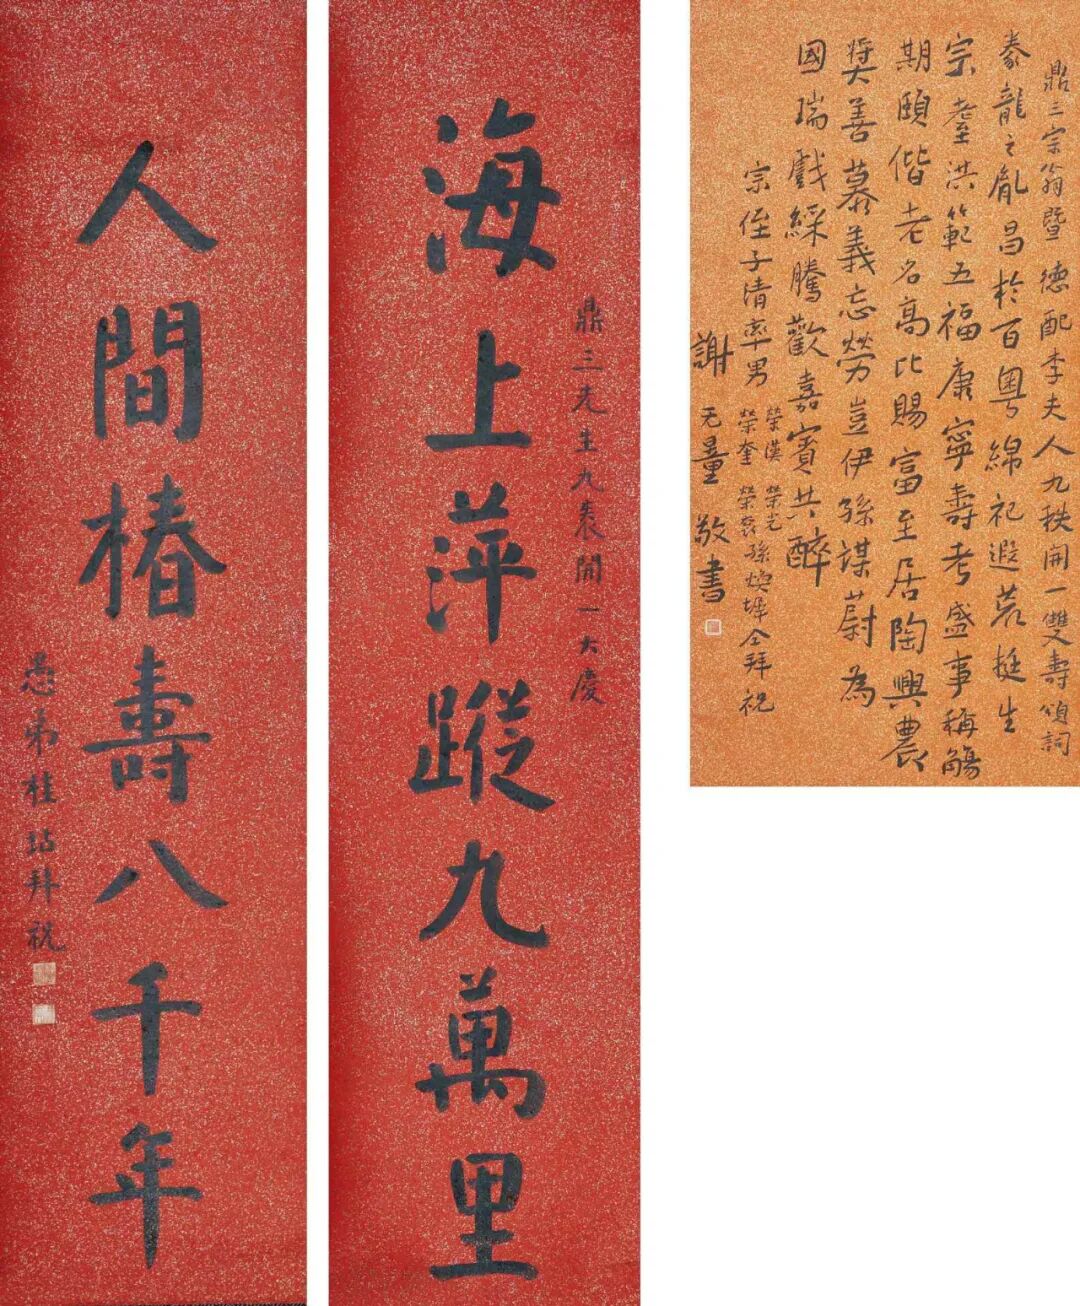 鼎三宗翁暨德配李夫人九秩開一雙壽頌詞
豢龍之胤昌於百粵綿祀遐荒挺生
宗耋洪範五福康寧壽考盛事稱觴
期頤偕老名高比賜富至居陶興農
獎善慕義忘勞豈伊孫謀蔚為
國瑞戲綵騰歡嘉賓共醉
宗侄子清率男
榮漢 榮光
榮奎 孫 仝拜祝
謝无量敬書
鼎三先生九袠開一大慶
海上萍蹤九萬里
人間椿壽八千年
愚弟桂坫拜祝